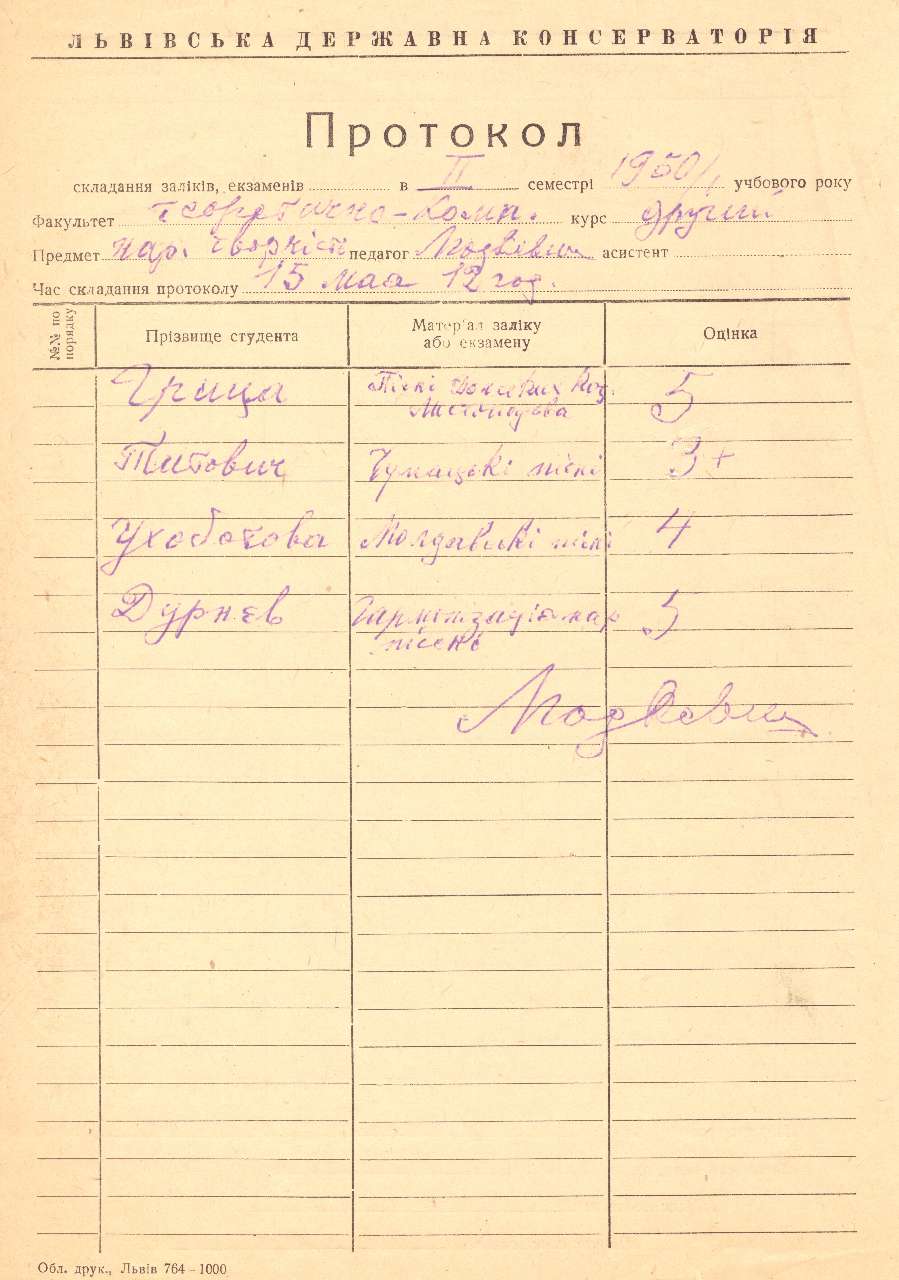 ЛЬВІВСЬКА ДЕРЖАВНА КОНСЕРВАТОРІЯ
Протокол
складання заліків, екзаменів в II семестрі 1950/1 учбового року
Факультет теоретично-комп. курс другий
Предмет нар. творчісті педагог асистент
Час складання протоколу 15 мая 12 год.
№№ по порядку Прізвище студента Матер'ал заліку або екзамену Оцінка
Грица Пісні Донських коз. 5
Листопадова
Титович Чумацькі пісні 3+
Ухоботова Молдавські пісні 4
Дурнєв Гармонізація нар 5
пісень
Обл. друк., Львів 764-1000